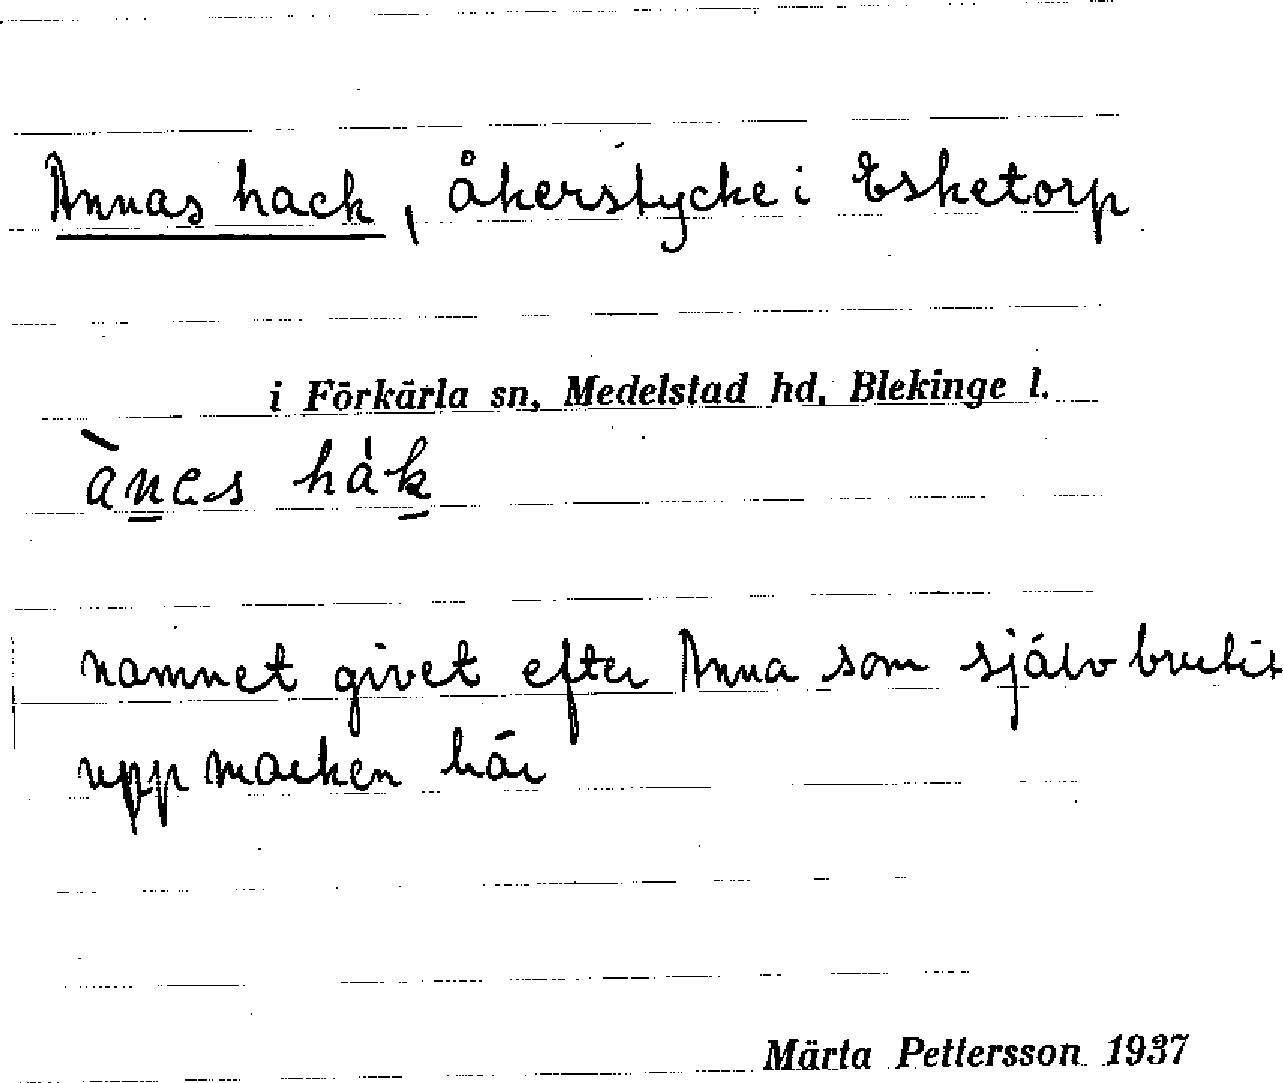 Annas hack, åkerstycke i Esketorp
i Förkärla sn, Medelstad hd, Blekinge l.
ànes hák
namnet givet efter Anna som själv brutit
upp marken här
Märta Pettersson 1937